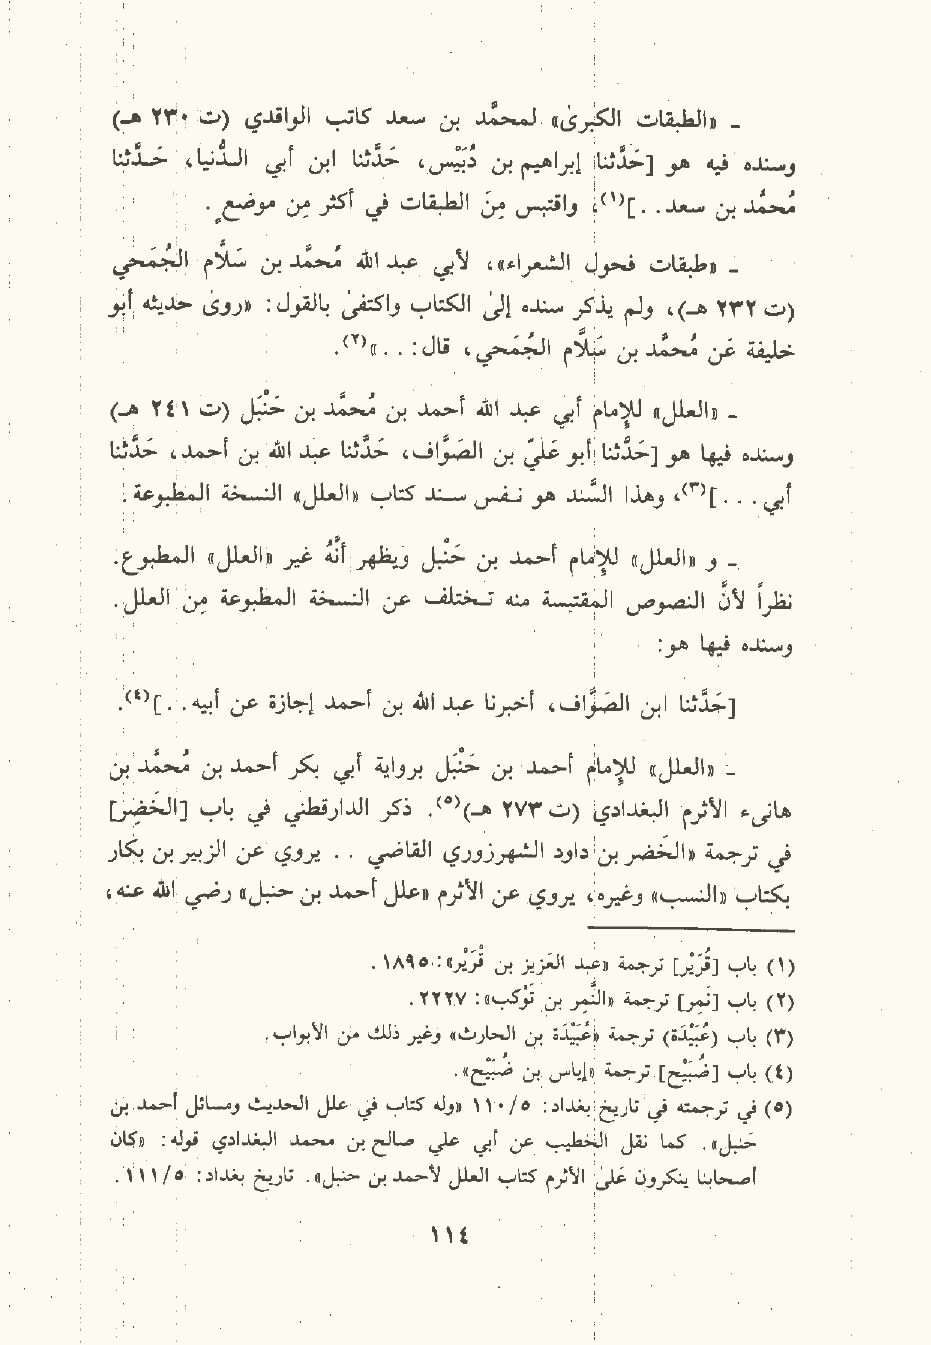 ـ «الطبقات الكبرىٰ» لمحمَّد بن سعد كاتب الواقدي (ت ٢٣٠ هـ)
وسنده فيه هو [حَدَّثنا إبراهيم بن دُبَيْس، حَدَّثنا ابن أبي الدُّنيا، حَدَّثنا
مُحمَّد بن سعد. .](١)، واقتبس مِنَ الطبقات في أكثر مِن موضعٍ.
ـ «طبقات فحول الشعراء»، لأبي عبد الله مُحمَّد بن سَلاَّم الجُمَحي
(ت ٢٣٢ هـ)، ولم يذكر سنده إلىٰ الكتاب واكتفىٰ بالقول: «روىٰ حديثه أبو
خليفة عَن مُحمَّد بن سَلاَّم الجُمَحي، قال: . .»(٢).
ـ «العلل» للإمام أبي عبد الله أحمد بن مُحمَّد بن حَنْبَل (ت ٢٤١ هـ)
وسنده فيها هو [حَدَّثنا أبو عَليّ بن الصَوَّاف، حَدَّثنا عبد الله بن أحمد، حَدَّثنا
أبي. . .](٣)، وهذا السَّند هو نفس سند كتاب «العلل» النسخة المطبوعة.
ـ و «العلل» للإمام أحمد بن حَنْبل ويظهر أنَّهُ غير «العلل» المطبوع.
نظراً لأنَّ النصوص المقتبسة منه تختلف عن النسخة المطبوعة مِن العلل.
وسنده فيها هو:
[حَدَّثنا ابن الصَوَّاف، أخبرنا عبد الله بن أحمد إجازة عن أبيه. .](٤).
ـ «العلل» للإمام أحمد بن حَنْبَل برواية أبي بكر أحمد بن مُحمَّد بن
هانىء الأثرم البغدادي (ت ٢٧٣ هـ)(٥). ذكر الدارقطني في باب [الخَضِر]
في ترجمة «الخَضر بن داود الشهرزوري القاضي . . يروي عن الزبير بن بكار
بكتاب «النسب» وغيره، يروي عن الأثرم «علل أحمد بن حنبل» رضي الله عنه،
(١) باب [قُرَيْر] ترجمة «عبد العَزيز بن قَرَيْر»: ١٨٩٥.
(٢) باب [نَمِر] ترجمة «النَّمِر بن تَوْكب»: ٢٢٢٧.
(٣) باب (عُبَيْدَة) ترجمة «عُبَيْدَة بن الحارث» وغير ذلك من الأبواب.
(٤) باب [ضُبَيْح] ترجمة «إياس بن ضُبَيْح».
(٥) في ترجمته في تاريخ بغداد: ١١٠/٥ «وله كتاب في علل الحديث ومسائل أحمد بن
حَنبل». كما نقل الخطيب عن أبي علي صالح بن محمد البغدادي قوله: «كان
أصحابنا ينكرون عَلىٰ الأثرم كتاب العلل لأحمد بن حنبل». تاريخ بغداد: ١١١/٥.
١١٤